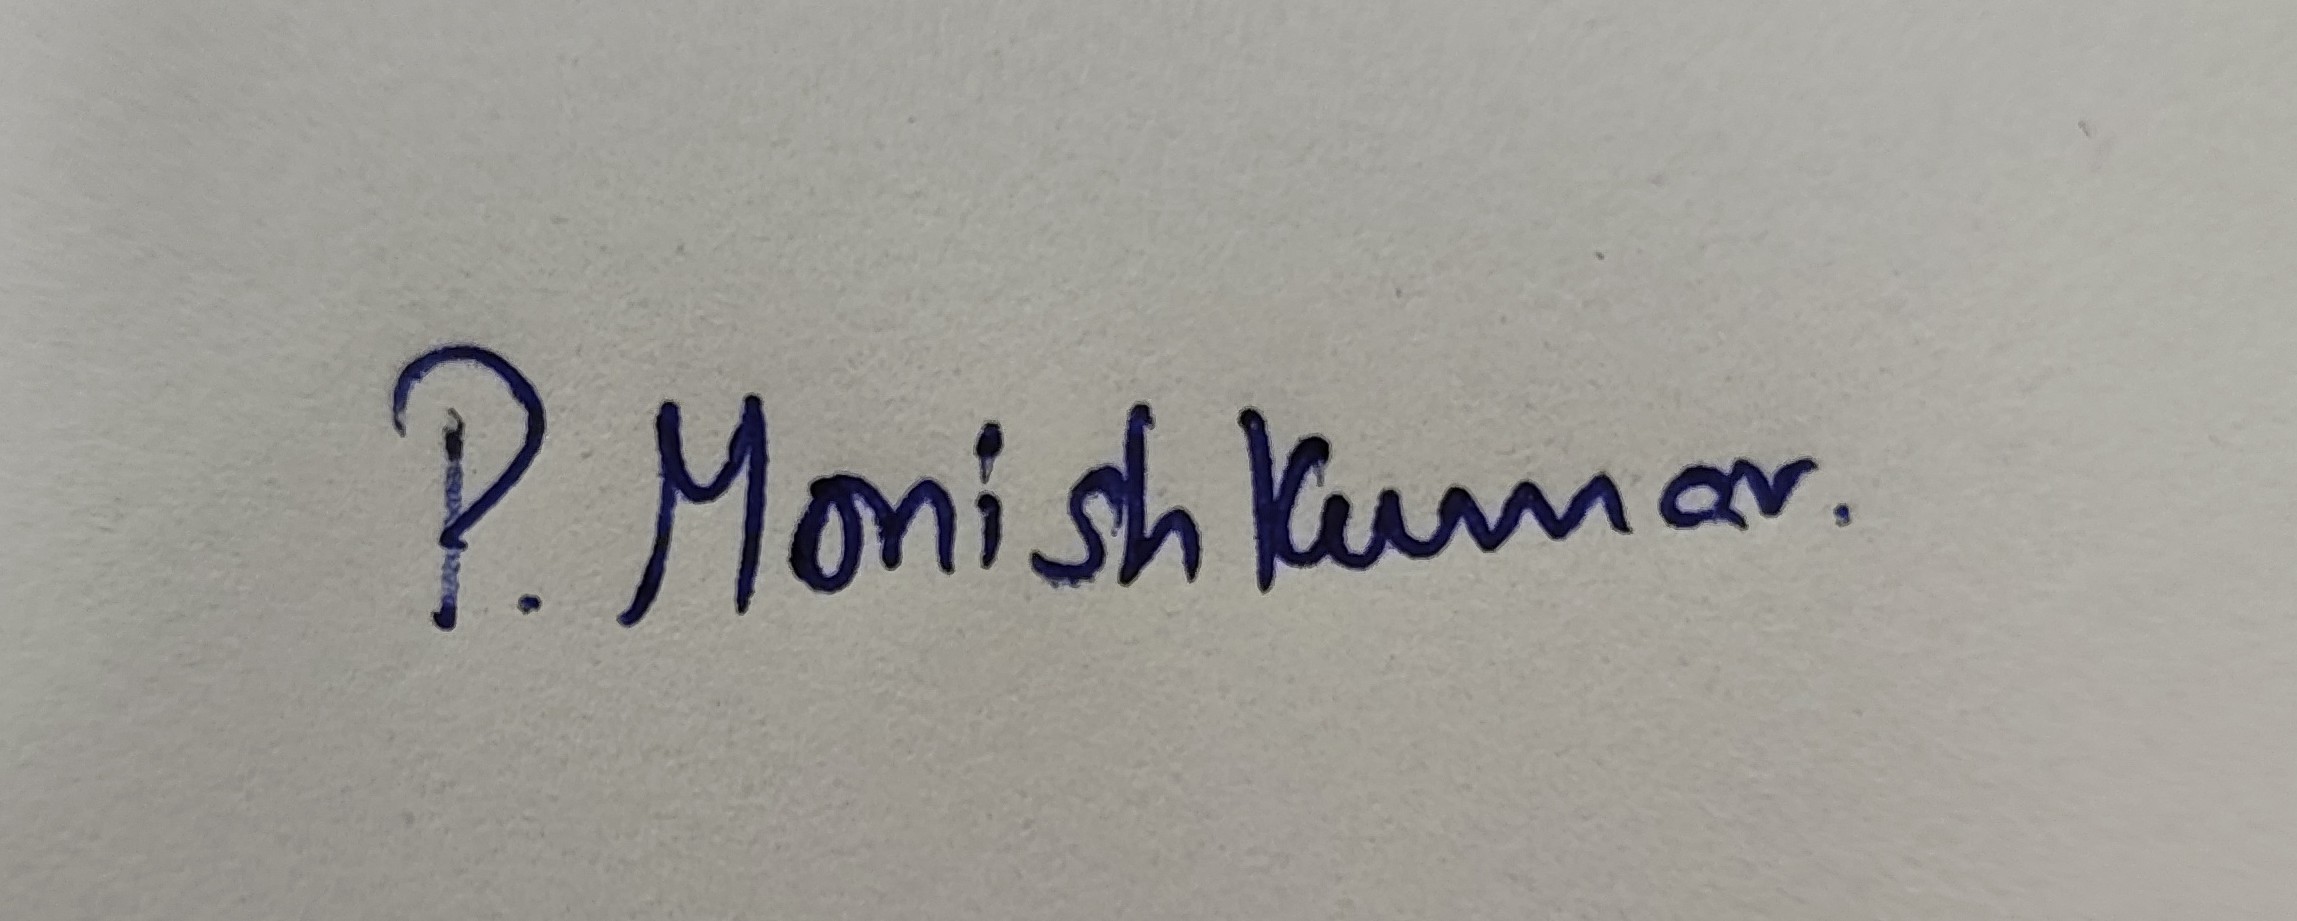 P. Monish Kumar.